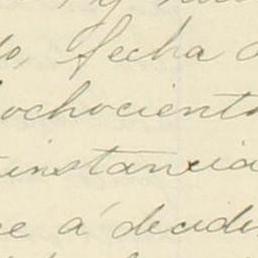 y
o, fecha d
ochociento
instancia
ce á decidi